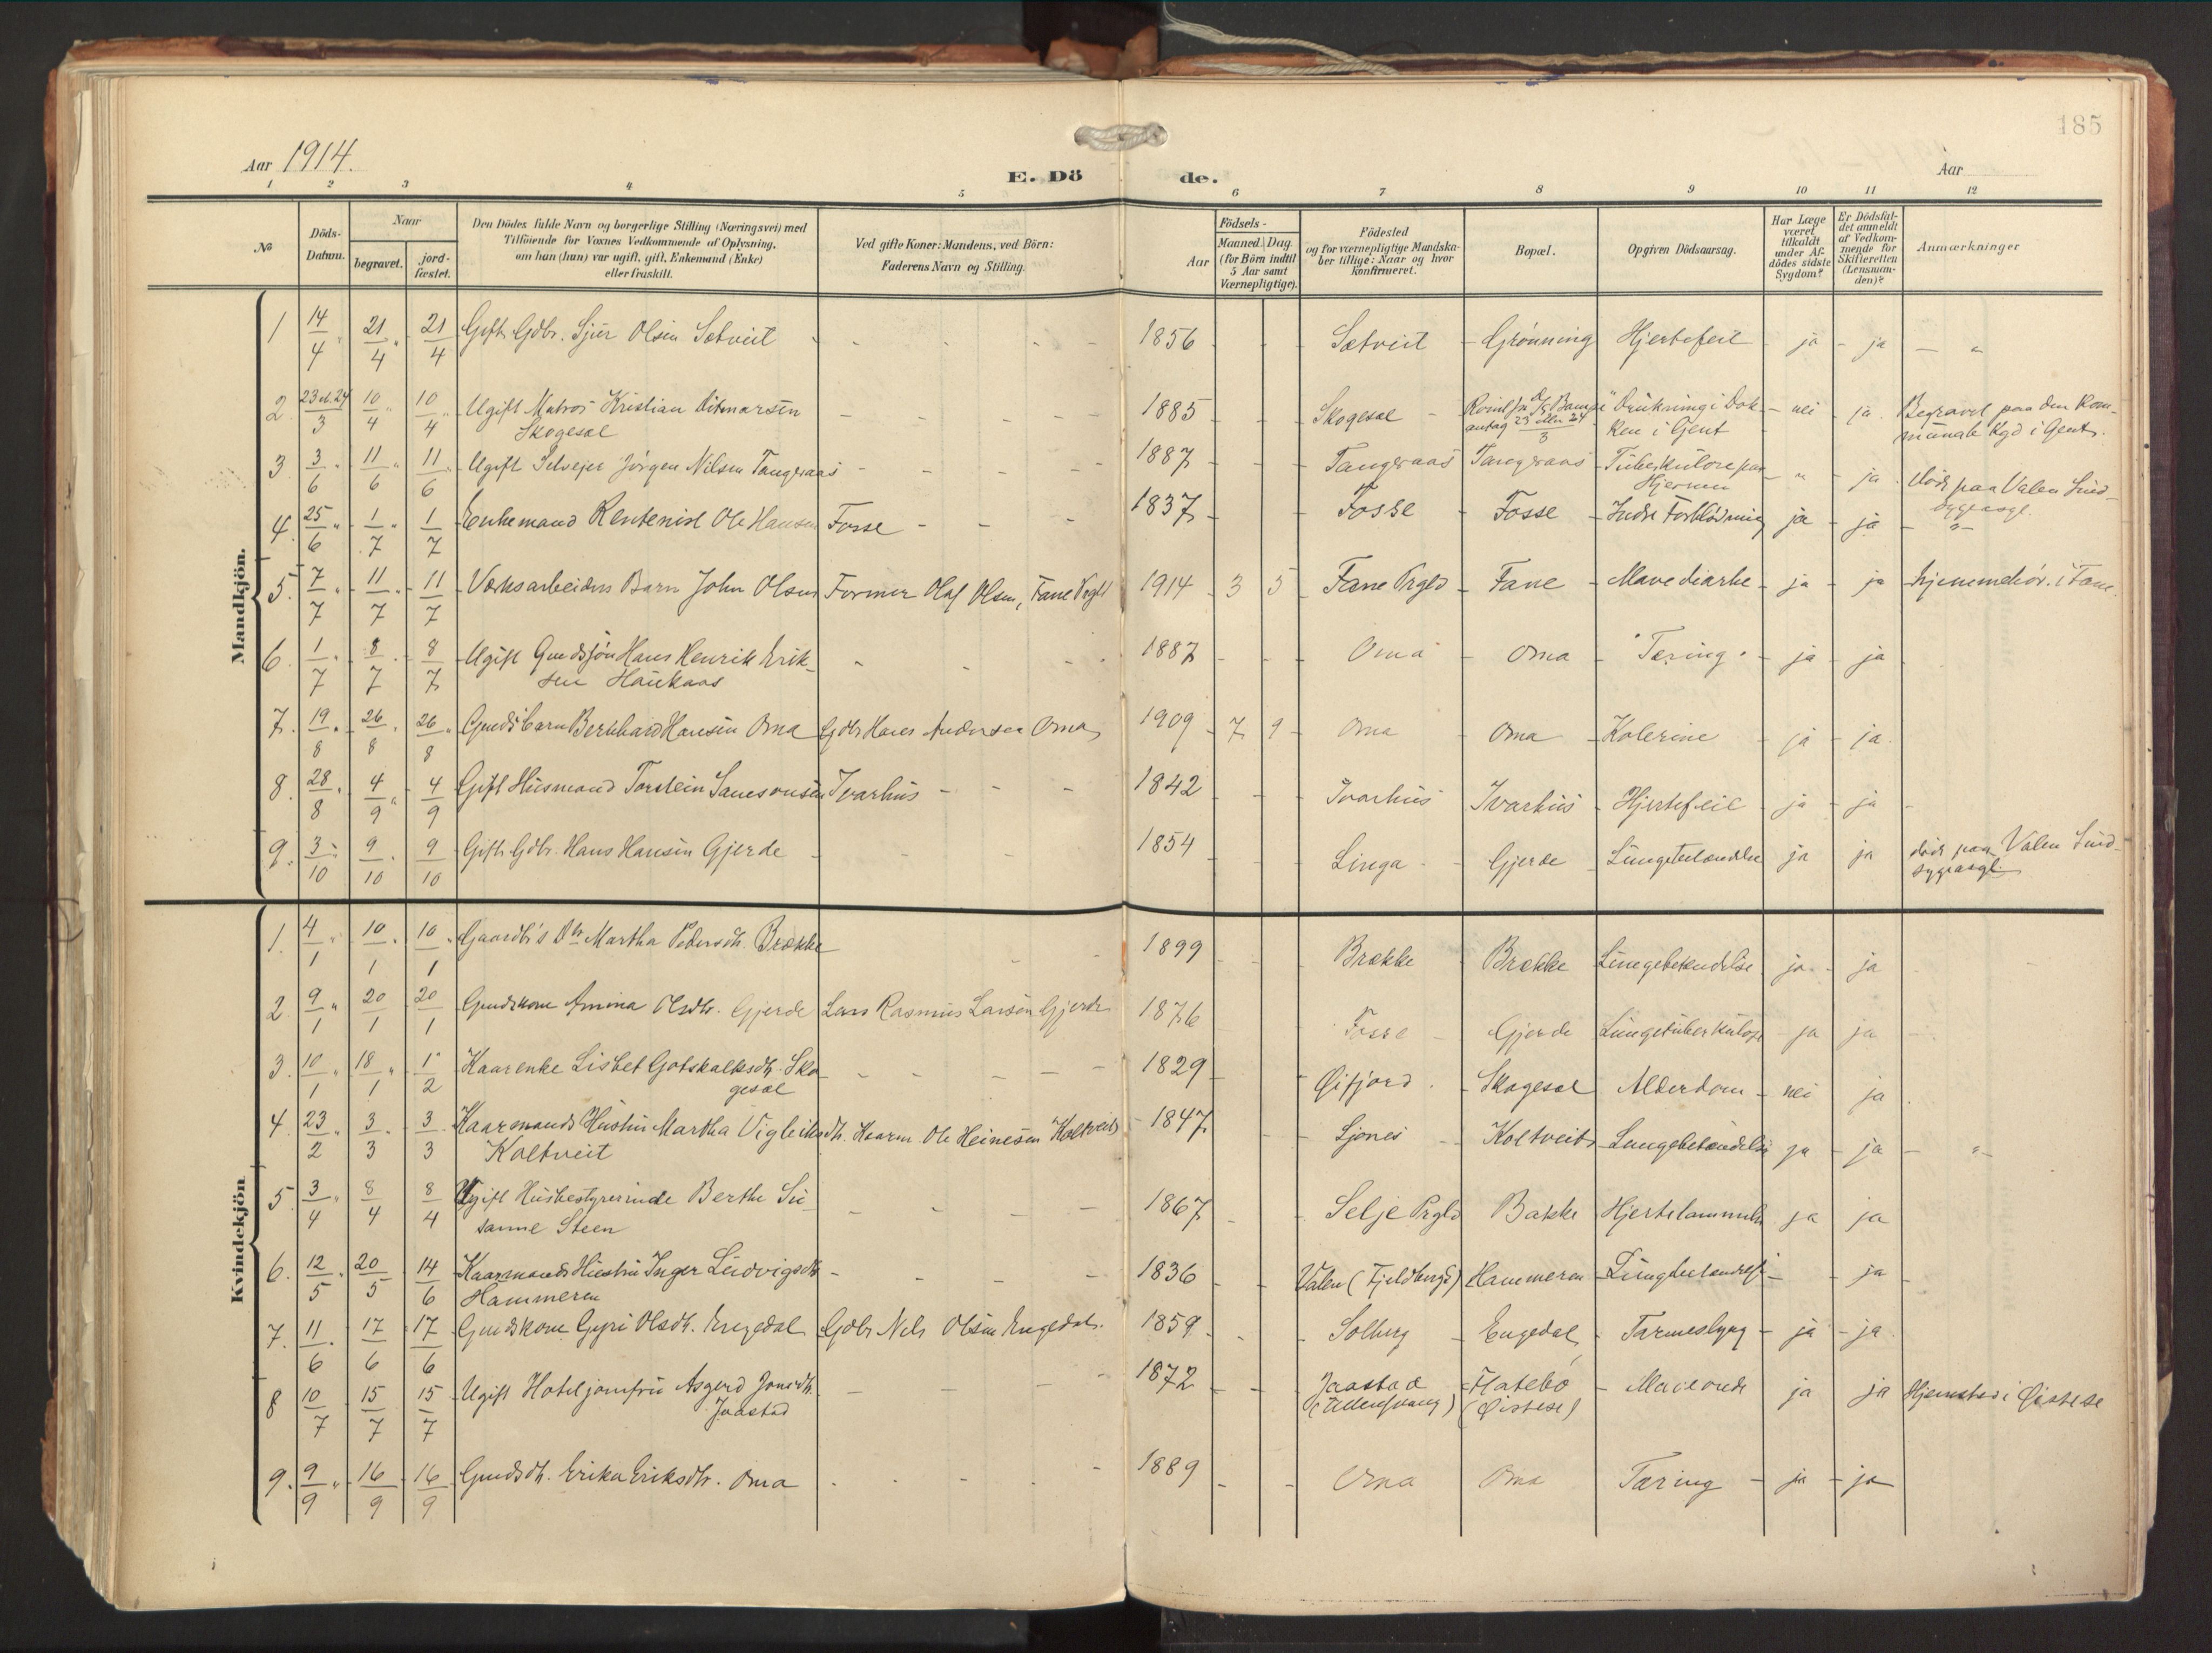 185
Aar 1914.
E. Dö de.
Aar
1 2 3 4 5 6 7 8 9 10 11 12
№
Döds-Datum.
Naar
begravet.
jord-fæstet.
Den Dödes fulde Navn og borgerlige Stilling (Næringsvei) med
Tilföiende for Voxnes Vedkommende af Oplysning,
om han (hun) var ugift, gift, Enkemand (Enke)
eller fraskilt.
Ved gifte Koner: Mandens, ved Börn:
Faderens Navn og Stilling.
Födsels-
Aar
Maaned. Dag
(for Börn indtil
5 Aar samt
Værnepligtige).
Födested
og for værnepligtige Mandska-
ber tillige: Naar og hvor
konfirmeret.
Bopæl.
Opgiven Dödsaarsag.
Har Læge
været
tilkaldt
under Af-
dödes sidste
Sygdom?
Er Dödsfal-
det anmeldt
af Vedkom-
mende for
Skifteretten
(Lensman-
den)?
Anmærkninger
Mandkjön.
1 14/4 21/4 21/4 Gift Gdbr. Sjur Olsen Sætveit 1856 Sætveit Grønning Hjertefeil ja ja
2 23 el. 24/3 10/4 10/4 Ugift Matros Kristian Ditmarsen 1885 Skogesæl "Drukning i Dok- nei ja Begravet paa den kom-
Skogesæl antag 23 eller 24/3 ken i Gent munale Kgd i Gent.
3 3/6 11/6 11/6 Ugift Selveier Jörgen Nilsen Tangeraas 1887 Tangeraas Tangeraas Tuberkulose paa " ja död paa Valen Sind-
Hjernen sygeasyl.
4. 25/6 1/7 1/7 Enkemand Rentenist Ole Hansen Fosse 1837 Fosse Fosse Indre Forblödning ja ja
5. 7/7 11/7 11/7 Værksarbeiders Barn John Olsen Former Olaf Olsen, Fane Prgld 1914 3 5 Fane Prgld Fane Mavediarhe ja ja hjemmehör. i Fane.
6. 1/7 8/7 8/7 Ugift Gmdssön Hans Henrik Erik- 1887 Oma Oma "Tæring" ja ja
sen Haukaas
7. 19/8 26/8 26/8 Gmds barn Bernhard Hansen Oma Gdbr Hans Andersen Oma 1909 7 9 Oma Oma Kolerine ja ja
8. 28/8 4/9 4/9 Gift Husmand Torstein Samsonsen Ivarhus 1842 Ivarhus Ivarhus Hjertefeil ja ja
9. 3/10 9/10 9/10 Gift Gdbr. Hans Hansen Gjerde 1854 Linga Gjerde Lungebetændelse ja ja död paa Valen Sind-
sygeasyl
Kvindekjön
1. 4/1 10/1 10/1 Gaardbr's Dtr Martha Pedersdtr. Brække 1899 Brække Brække Lungebetændelse ja ja
2 9/1 20/1 20/1 Gmdskone Amina Olsdtr. Gjerde Lars Rasmus Larsen Gjerde 1876 Fosse Gjerde Lungetuberkulose ja ja
3. 10/1 18/1 1/2 Kaarenke Lisbet Gotskalksdtr. Sko- 1829 Øifjord Skogesæl Alderdom nei ja
gesæl
4. 23/2 3/3 3/3 Kaarmands Hustru Martha Vigleiksdtr. Kaarm. Ole Heinesen Koltveit 1847 Ljones Koltveit Lungebetændelse ja ja
Koltveit
5 3/4 8/4 8/4 Ugift Husbestyrerinde Berthe Su- 1867 Selje Prgld Bakke Hjertelammelse ja ja
sanne Steen
6. 12/5 20/5 14/6 Kaarmands Hustru Inger Ludvigsdtr 1836 Valen (Fjeldbergs) Hammeren Lungebetændelse ja
Hammeren
7. 11/6 17/6 17/6 Gmdskone Gyri Olsdtr. Engedal Gdbr Nels Olsen Engedal 1859 Solberg Engedal Tarmeslyng ja ja
8 10/7 15/7 15/7 Ugift Hoteljomfru Asgerd Jonsdtr. 1872 Jaastad Flatebö Maveonde ja ja Hjemsted i Øistese
Jaastad (Ullensvang) (Øistese)
9. 9/9 16/9 16/9 Gmdsdtr. Erika Eriksdtr. Oma 1889 Oma Oma Tæring ja ja